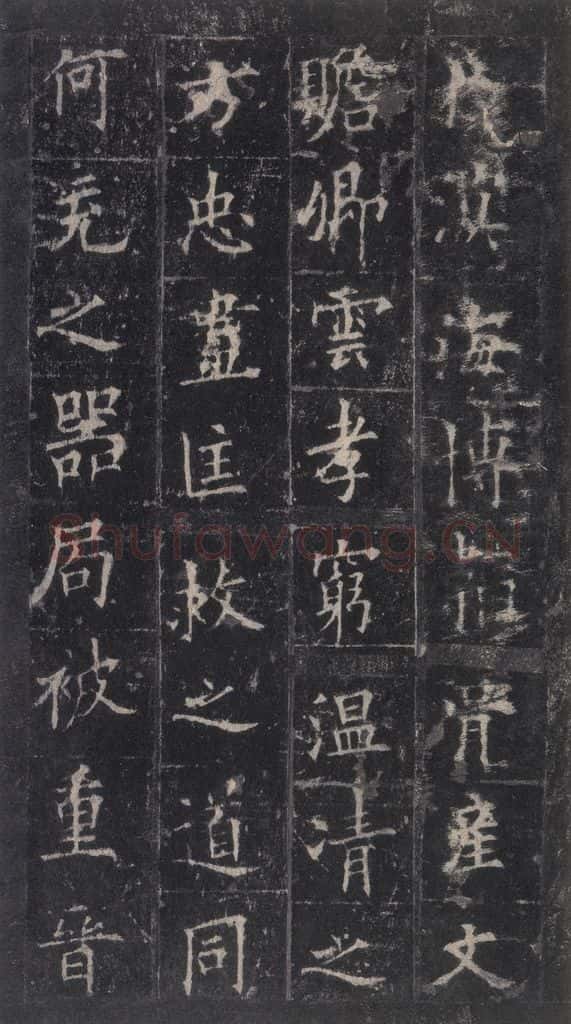 海博產文
贍卿雲孝窮温凊之
方忠盡匡救之道同
何充之器局被重晉
Shufawang.CN